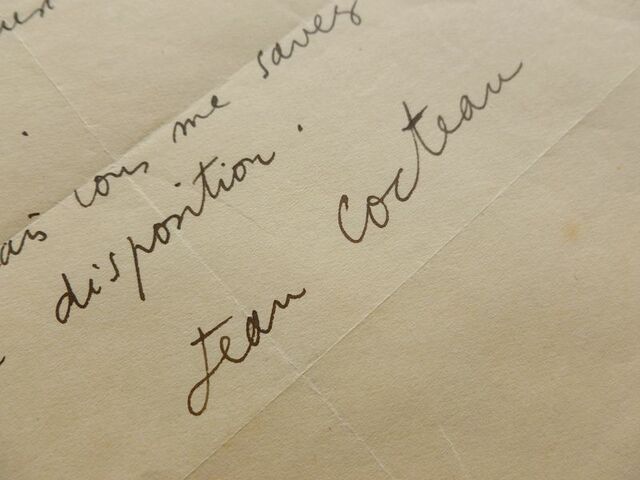 ais vous me savez
disposition.
Jean Cocteau